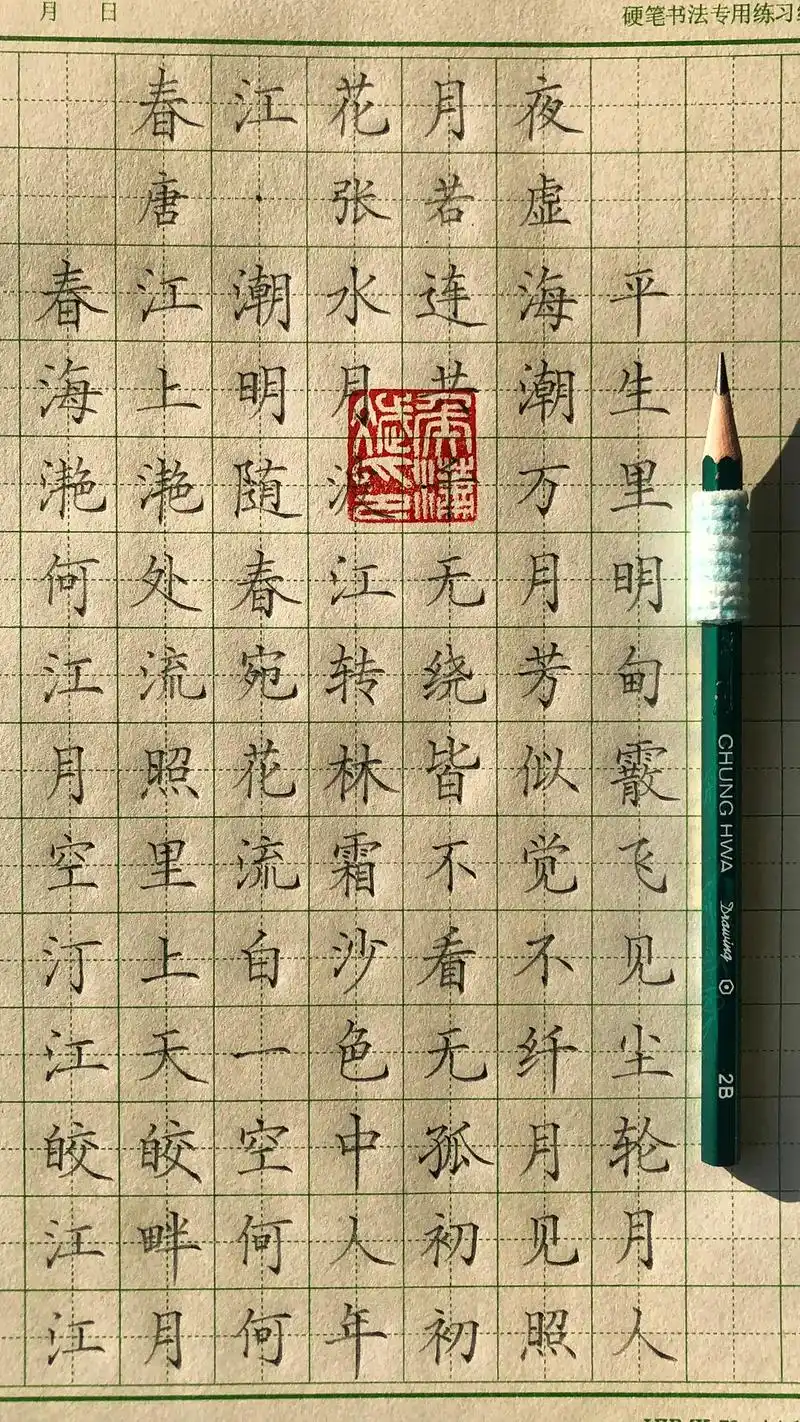 月 日
硬笔书法专用练习
春江花月夜
唐·张若虚
春江潮水连海平
海上明月共潮生
滟滟随波千万里
何处春江无月明
江流宛转绕芳甸
月照花林皆似霰
空里流霜不觉飞
汀上白沙看不见
江天一色无纤尘
皎皎空中孤月轮
江畔何人初见月
江月何年初照人
CHUNG HWA Drawing 2B